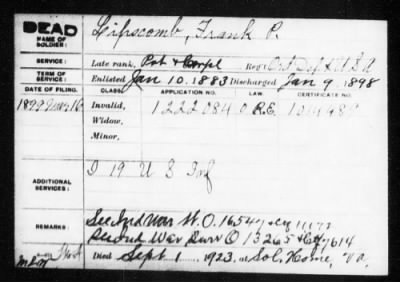 DEAD
NAME OF SOLDIER: Lipscomb, Frank P.
SERVICE: Late rank, Pvt & Corpl Regt Ord Dept U S A
TERM OF SERVICE: Enlisted Jan 10. 1883 Discharged Jan 9. 1898
DATE OF FILING. CLASS. APPLICATION NO. LAW. CERTIFICATE NO.
1899 Mar 16 Invalid, 1222084 O R.E.
Widow,
Minor,
ADDITIONAL SERVICES: I 19 U S Inf
REMARKS: See Ind War S.O. 16547
Second War Surv O 13265
Died Sept 1 1923, at Sol. Home, Va.